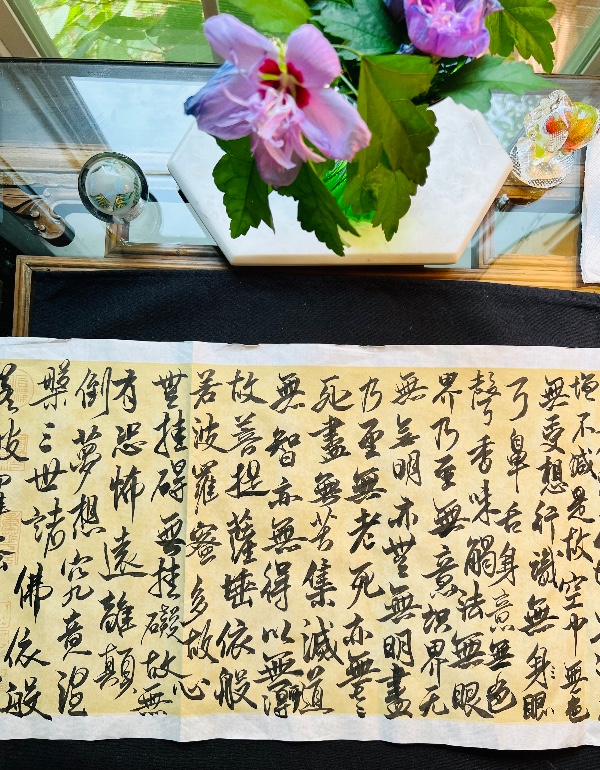 增不減是故空中無色
無受想行識無身眼
耳鼻舌身意無色
聲香味觸法無眼
界乃至無意識界无
無无明亦無無明盡
乃至無老死亦無老
死盡無苦集滅道
無智亦無得以無所得
故菩提薩埵依般
若波羅蜜多故心
無挂碍無挂礙故無
有恐怖遠離顛
倒夢想究竟涅
槃三世諸佛依般
若波羅蜜